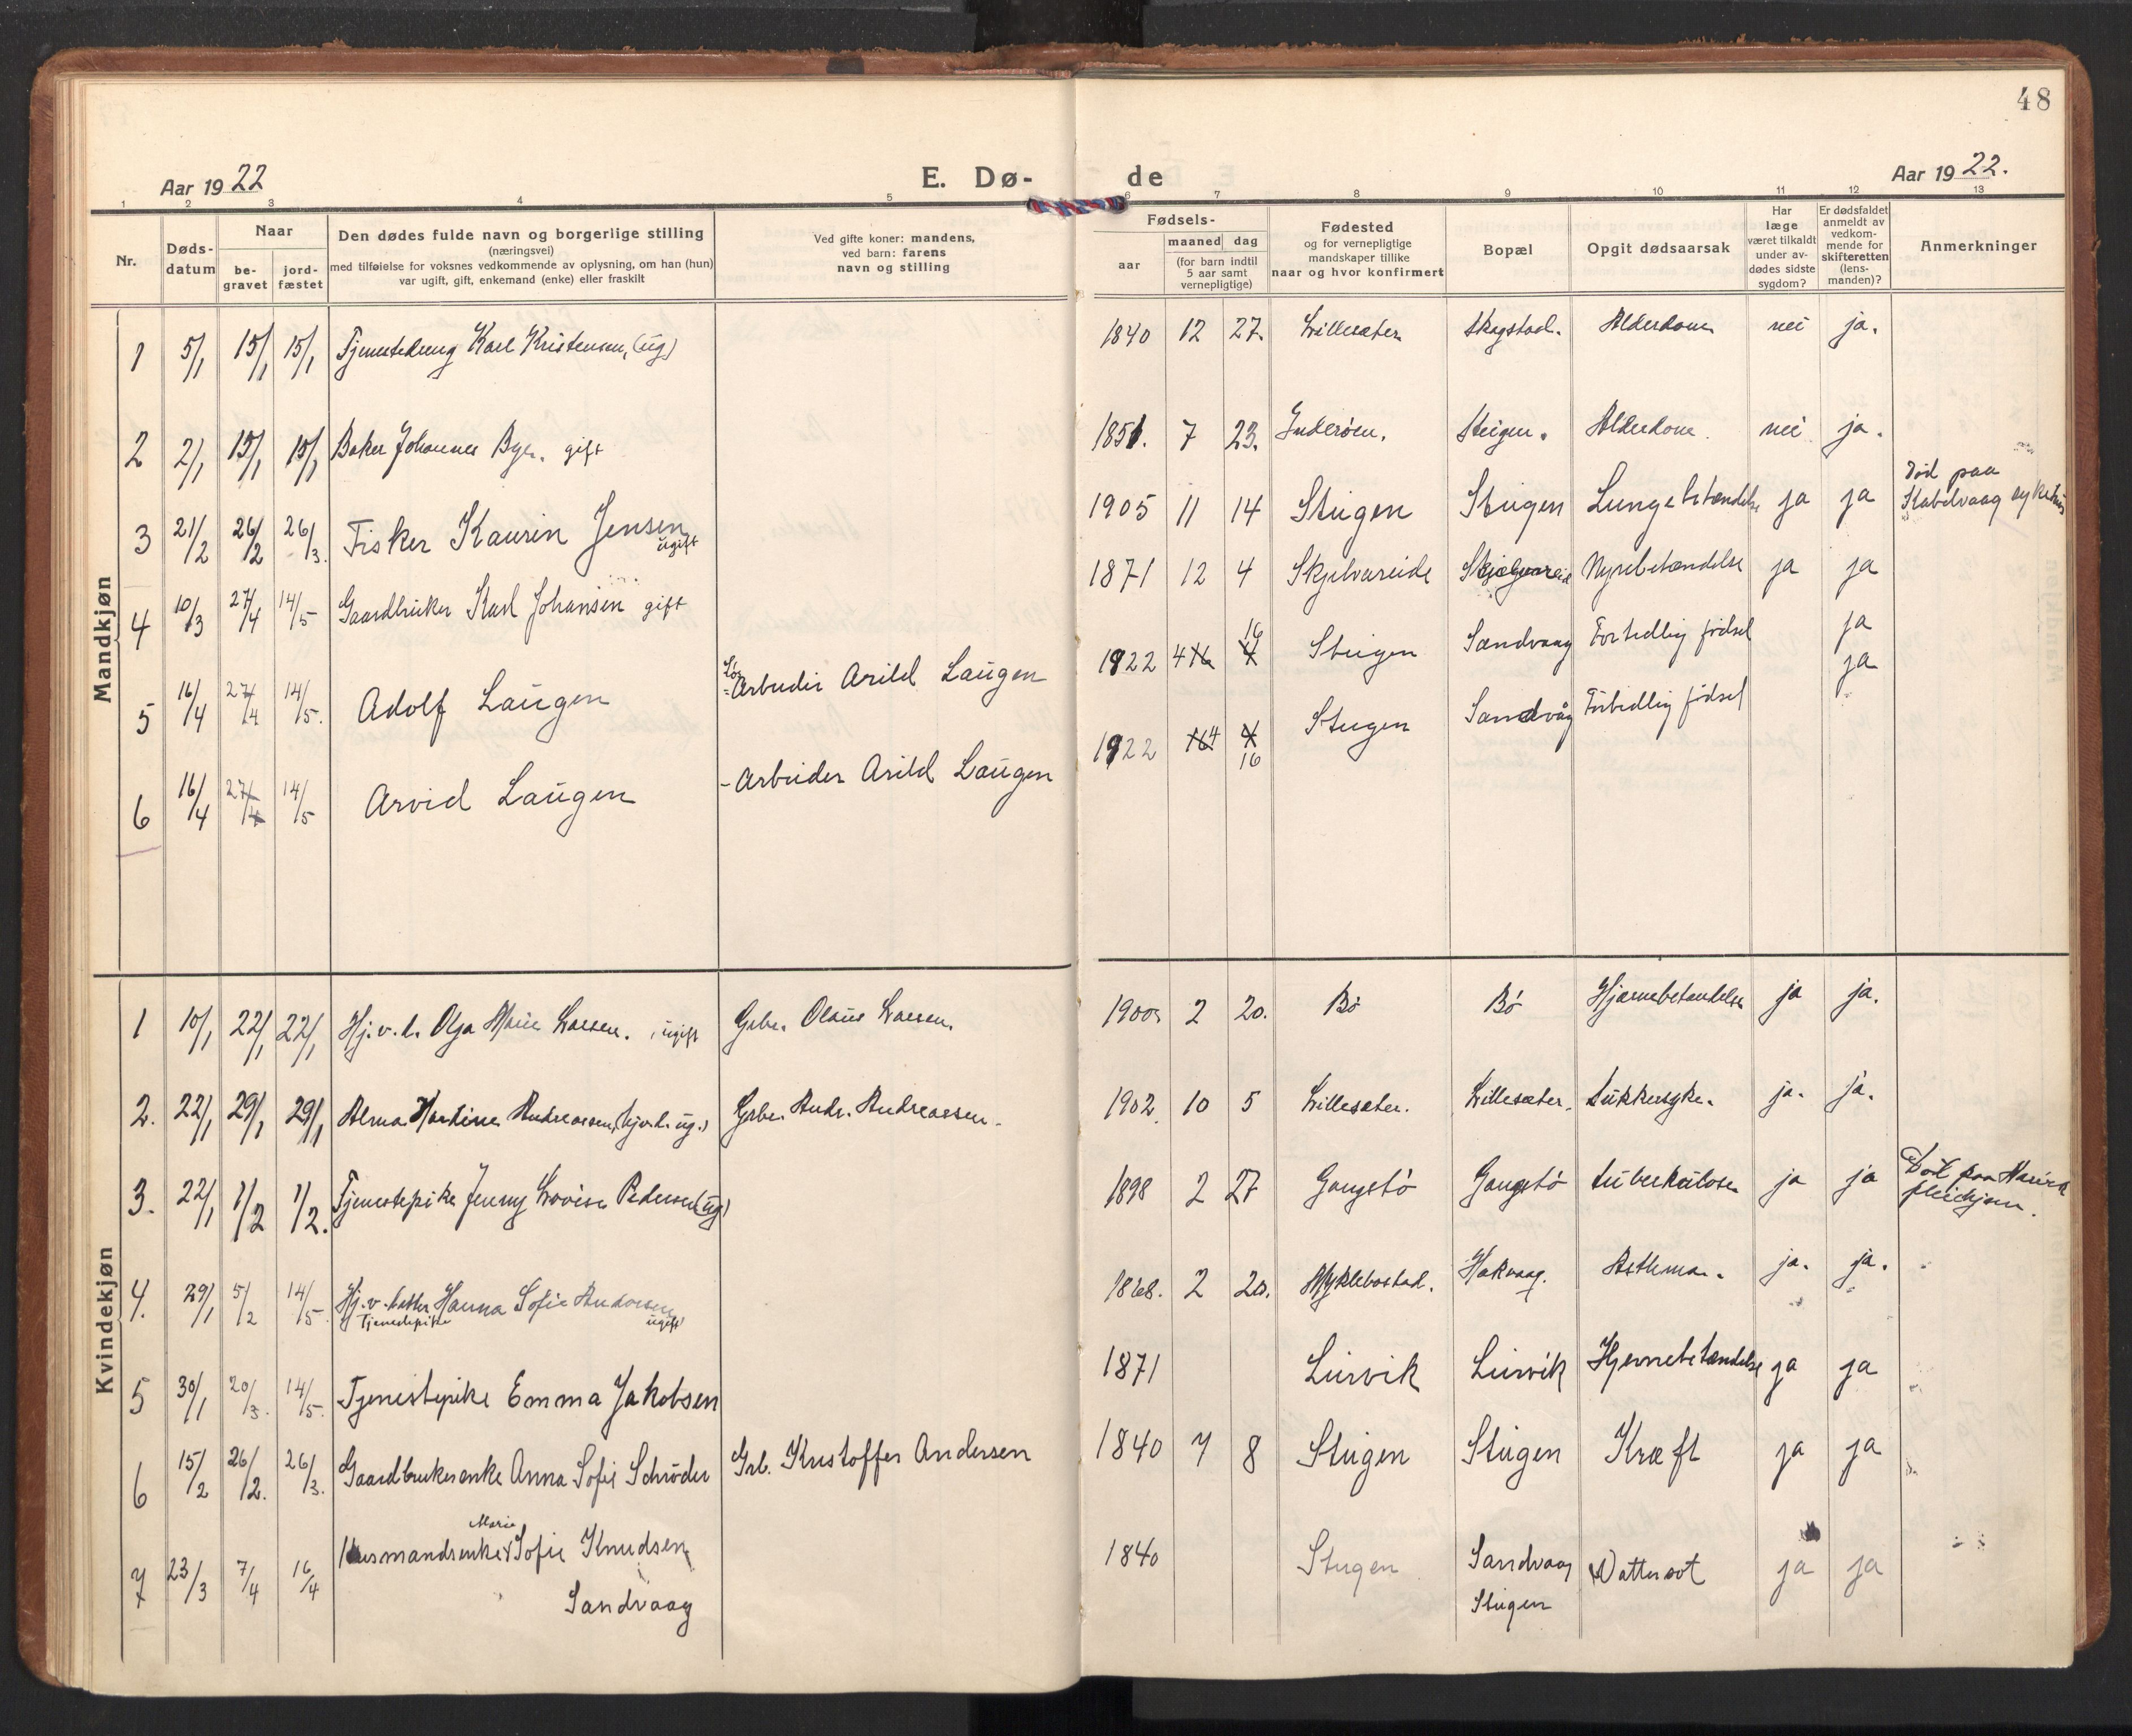 48
Aar 1922
E. Dø-
de
Aar 1922.
1 2 3 4 5 6 7 8 9 10 11 12 13
Nr.
Døds-
datum
Naar
be-
gravet
jord-
fæstet
Den dødes fulde navn og borgerlige stilling
(næringsvei)
med tilføielse for voksnes vedkommende av oplysning, om han (hun)
var ugift, gift, enkemand (enke) eller fraskilt
Ved gifte koner: mandens,
ved barn: farens
navn og stilling
Fødsels-
aar
maaned dag
(for barn indtil
5 aar samt
vernepligtige)
Fødested
og for vernepligtige
mandskaper tillike
naar og hvor konfirmert
Bopæl
Opgit dødsaarsak
Har
læge
været tilkaldt
under av-
dødes sidste
sygdom?
Er dødsfaldet
anmeldt av
vedkom-
mende for
skifteretten
(lens-
manden)?
Anmerkninger
Mandkjøn
1 5/1 15/1 15/1 Tjenestedreng Karl Kristensen, (ug) 1840 12 27. Lillesæter Skagstad. Alderdom nei ja.
2 2/1 15/1 15/1 Baker Johannes Bye. gift 1851. 7 23. Inderøen. Steigen. Alderdom. nei ja.
3 21/2 26/2 26/3. Fisker Kaurin Jensen ugift 1905 11 14 Steigen Steigen Lungebetændelse ja ja Død paa
Kabelvaag sykehus
4 10/3 27/4 14/5 Gaardbruker Karl Johansen gift 1871 12 4 Skjelvareide Skjelvareid Nyrebetændelse ja ja
5 16/4 27/4 14/5. Adolf Laugen Arbeider Arild Laugen 1922 4 16 Steigen Sandvaag Fortidlig fødsel ja
6 16/4 27/4 14/5 Arvid Laugen - Arbeider Arild Laugen 1922 4 16 Steigen Sandvåg Fortidlig fødsel ja
Kvindekjøn
1 10/1 22/1 22/1 Hj.v.d. Olga Marie Larsen. ugift Gbr. Olaus Larsen. 1900. 2 20. Bø Bø Hjernebetændelse ja ja.
2. 22/1 29/1 29/1 Alma Hartine Andreassen, (hj.v.d. ug.) Gbr. Andr. Andreassen. 1902. 10 5 Lillesæter. Lillesæter. Sukkersyke. ja. ja.
3. 22/1 1/2 1/2. Tjenestepike Jenny Lovise Pedersen (ug) 1898 2 27 Gangstø Gangstø tuberkulose ja ja Død paa
pleiehjem.
4. 29/1 5/2 14/5. Hj.v. datter Hanna Sofie Andorsen
Tjenestepike ugift 1868. 2 20. Myklebostad. Hakvaag. Asthma. ja. ja.
5 30/1 20/3. 14/5. Tjenestepike Emma Jakobsen 1871 Leirvik Leirvik Hjernebetændelse ja ja
6 15/2 26/2. 26/3. Gaardbrukerenke Anna Sofie Schrøder Grb. Kristoffer Andersen 1840 7 8 Steigen Steigen Kræft ja ja
Marie
7 23/3 7/4 16/4 Husmandsenke Sofie Knudsen 1840 Steigen Sandvaag Vattersot ja ja
Sandvaag Steigen